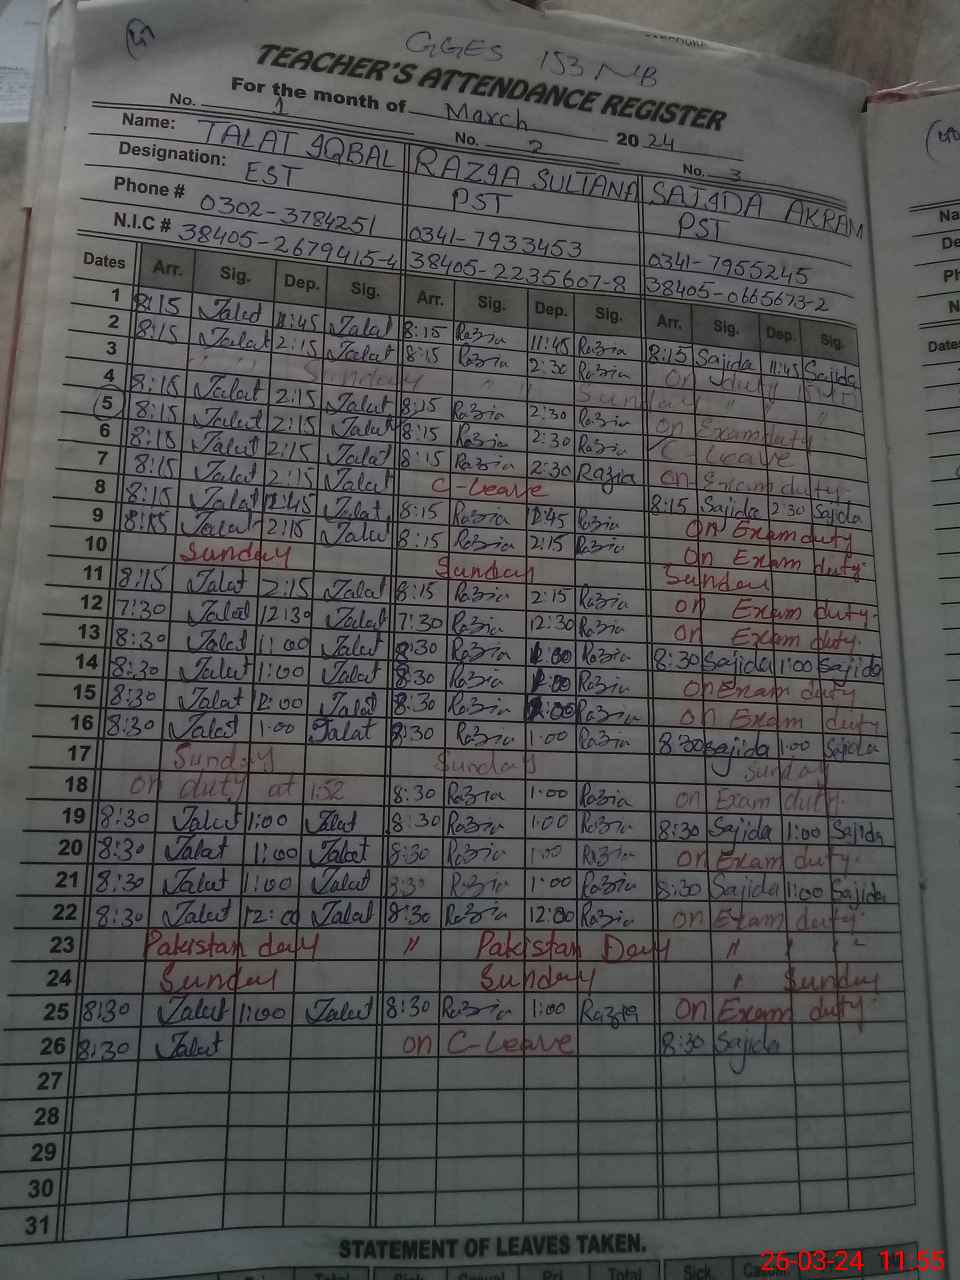 GGES 153 NB
TEACHER'S ATTENDANCE REGISTER
For the month of March 2024
No. 1 No. 2 No. 3
Name: TALAT IQBAL RAZIA SULTANA SAJIDA AKRAM
Designation: EST PST PST
Phone # 0302-3784251 0341-7933453 0341-7955245
N.I.C # 38405-2679415-4 38405-2235607-8 38405-0665673-2
Dates Arr. Sig. Dep. Sig. Arr. Sig. Dep. Sig. Arr. Sig. Dep. Sig.
1 8:15 Talat 11:45 Talat 8:15 Razia 11:45 Razia 8:15 Sajida 11:45 Sajida
2 8:15 Talat 2:15 Talat 8:15 Razia 2:30 Razia on duty
3 Sunday " " Sunday " "
4 8:15 Talat 2:15 Talat 8:15 Razia 2:30 Razia on Exam duty
5 8:15 Talat 2:15 Talat 8:15 Razia 2:30 Razia C-Leave
6 8:15 Talat 2:15 Talat 8:15 Razia 2:30 Razia on Exam duty
7 8:15 Talat 2:15 Talat C-Leave 8:15 Sajida 2:30 Sajida
8 8:15 Talat 12:45 Talat 8:15 Razia 12:45 Razia on Exam duty
9 8:15 Talat 2:15 Talat 8:15 Razia 2:15 Razia on Exam duty
10 Sunday Sunday Sunday
11 8:15 Talat 2:15 Talat 8:15 Razia 2:15 Razia on Exam duty
12 7:30 Talat 12:30 Talat 7:30 Razia 12:30 Razia on Exam duty
13 8:30 Talat 1:00 Talat 8:30 Razia 1:00 Razia 8:30 Sajida 1:00 Sajida
14 8:30 Talat 1:00 Talat 8:30 Razia 1:00 Razia on Exam duty
15 8:30 Talat 12:00 Talat 8:30 Razia 12:00 Razia on Exam duty
16 8:30 Talat 1:00 Talat 8:30 Razia 1:00 Razia 8:30 Sajida 1:00 Sajida
17 Sunday Sunday Sunday
18 on duty at 152 8:30 Razia 1:00 Razia on Exam duty
19 8:30 Talat 1:00 Talat 8:30 Razia 1:00 Razia 8:30 Sajida 1:00 Sajida
20 8:30 Talat 1:00 Talat 8:30 Razia 1:00 Razia on Exam duty
21 8:30 Talat 1:00 Talat 8:30 Razia 1:00 Razia 8:30 Sajida 1:00 Sajida
22 8:30 Talat 12:00 Talat 8:30 Razia 12:00 Razia on Exam duty
23 Pakistan day " Pakistan Day " " "
24 Sunday Sunday " Sunday
25 8:30 Talat 1:00 Talat 8:30 Razia 1:00 Razia on Exam duty
26 8:30 Talat on C-Leave 8:30 Sajida
27
28
29
30
31
STATEMENT OF LEAVES TAKEN.
26-03-24 11.55